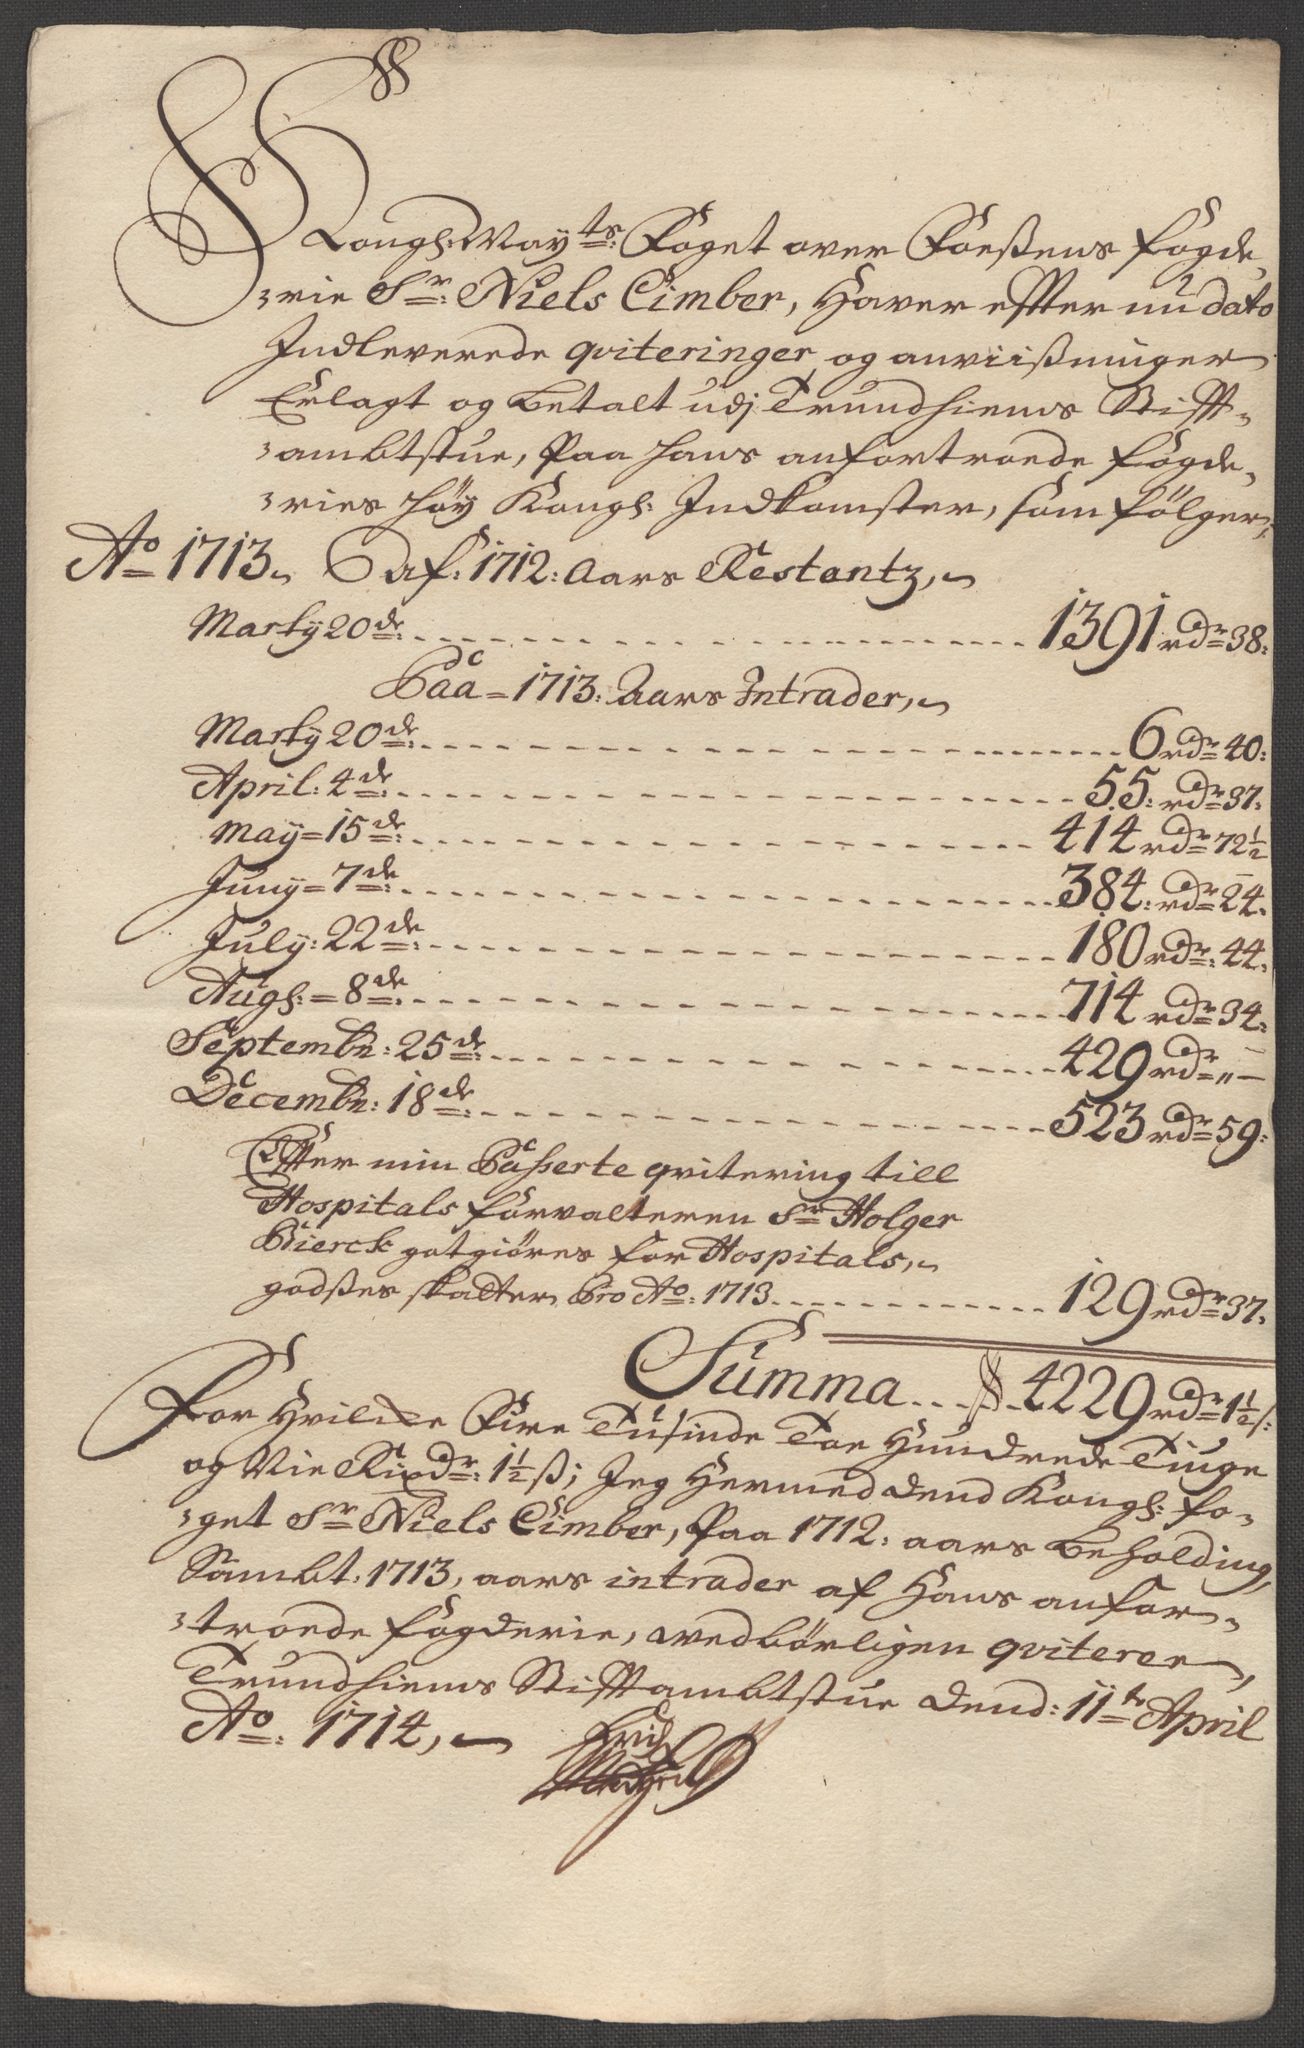 Kongl: May:ts: Foget over Foeßens fogde,
:rie Sr: Niels Cimber, Hawer effter nu dato
Indleverede qviteringer og anviißninger
Erlagt og betalt udj Trundhiems Stifft-
:ambtstue, Paa hans anfortroede fogde,
:ries höy Kongl: Indkomster, som fölger,
Ao 1713. af: 1712: aars Restantz,
Marty 20de: 1391 rdr 38:
Paa = 1713: Aars Intrader,
Marty 20de: 6 rdr 40:
April: 4de: 55: rdr 37:
May = 15de: 414 rdr 72½
Juny = 7de: 384: rdr 24.
July: 22de: 180 rdr: 44.
Augl: = 8de: 714 rdr 34:
Septembr: 25de: 429 rdr „ —
Decembr: 18de: 523 rdr 59:
Effter min Passerte qvitering till
Hospitals forvalteren Sr Holger
Bierck gotgiöres for Hospitals,
godßes skatter, Pro Ao: 1713. 129 rdr 37.
Summa 4229 rdr 1½ s:
For Hvilcke Fire Tusinde Toe Hundrede Tiuge
og Nie Rixdr: 1½ ß; Jeg Hermed dend Kongl: fo-
:get Sr Niels Cimber, Paa 1712: aars beholding,
Sambt. 1713, aars intrader af Hans anfor-
:troede fogderie, wedbörligen qviterer,
Trundhiems Stifftambtstue dend: 11te April
Ao: 1714,